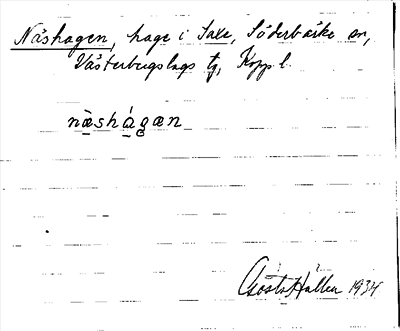 Näshagen, hage i Saxe, Söderbärke sn,
Västerbergslags tg, Kopp. l.
næshágæn
Gösta Hallén 1934